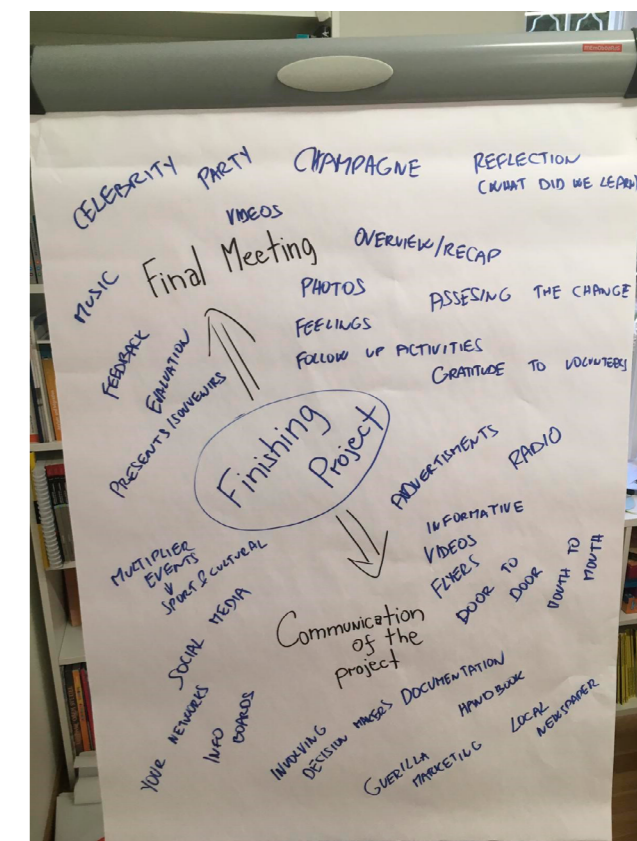 CELEBRITY
PARTY
CHAMPAGNE
REFLECTION
(WHAT DID WE LEARN
VIDEOS
Final Meeting
OVERVIEW/RECAP
MUSIC
PHOTOS
ASSESING THE CHANGE
FEELINGS
FOLLOW UP ACTIVITIES
GRATITUDE TO VOLUNTEERS
FEEDBACK
EVALUATION
PRESENTS/SOUVENIRS
Finishing
Project
ADVERTISMENTS
RADIO
INFORMATIVE
VIDEOS
FLYERS
DOOR TO
DOOR
MOUTH TO
MOUTH
MULTIPLIER
EVENTS
SPORT & CULTURAL
SOCIAL MEDIA
Communication
of the
project
YOUR NETWORKS
INFO
BOARDS
INVOLVING
DECISION MAKERS
DOCUMENTATION
HANDBOOK
GUERILLA
MARKETING
LOCAL
NEWSPAPER